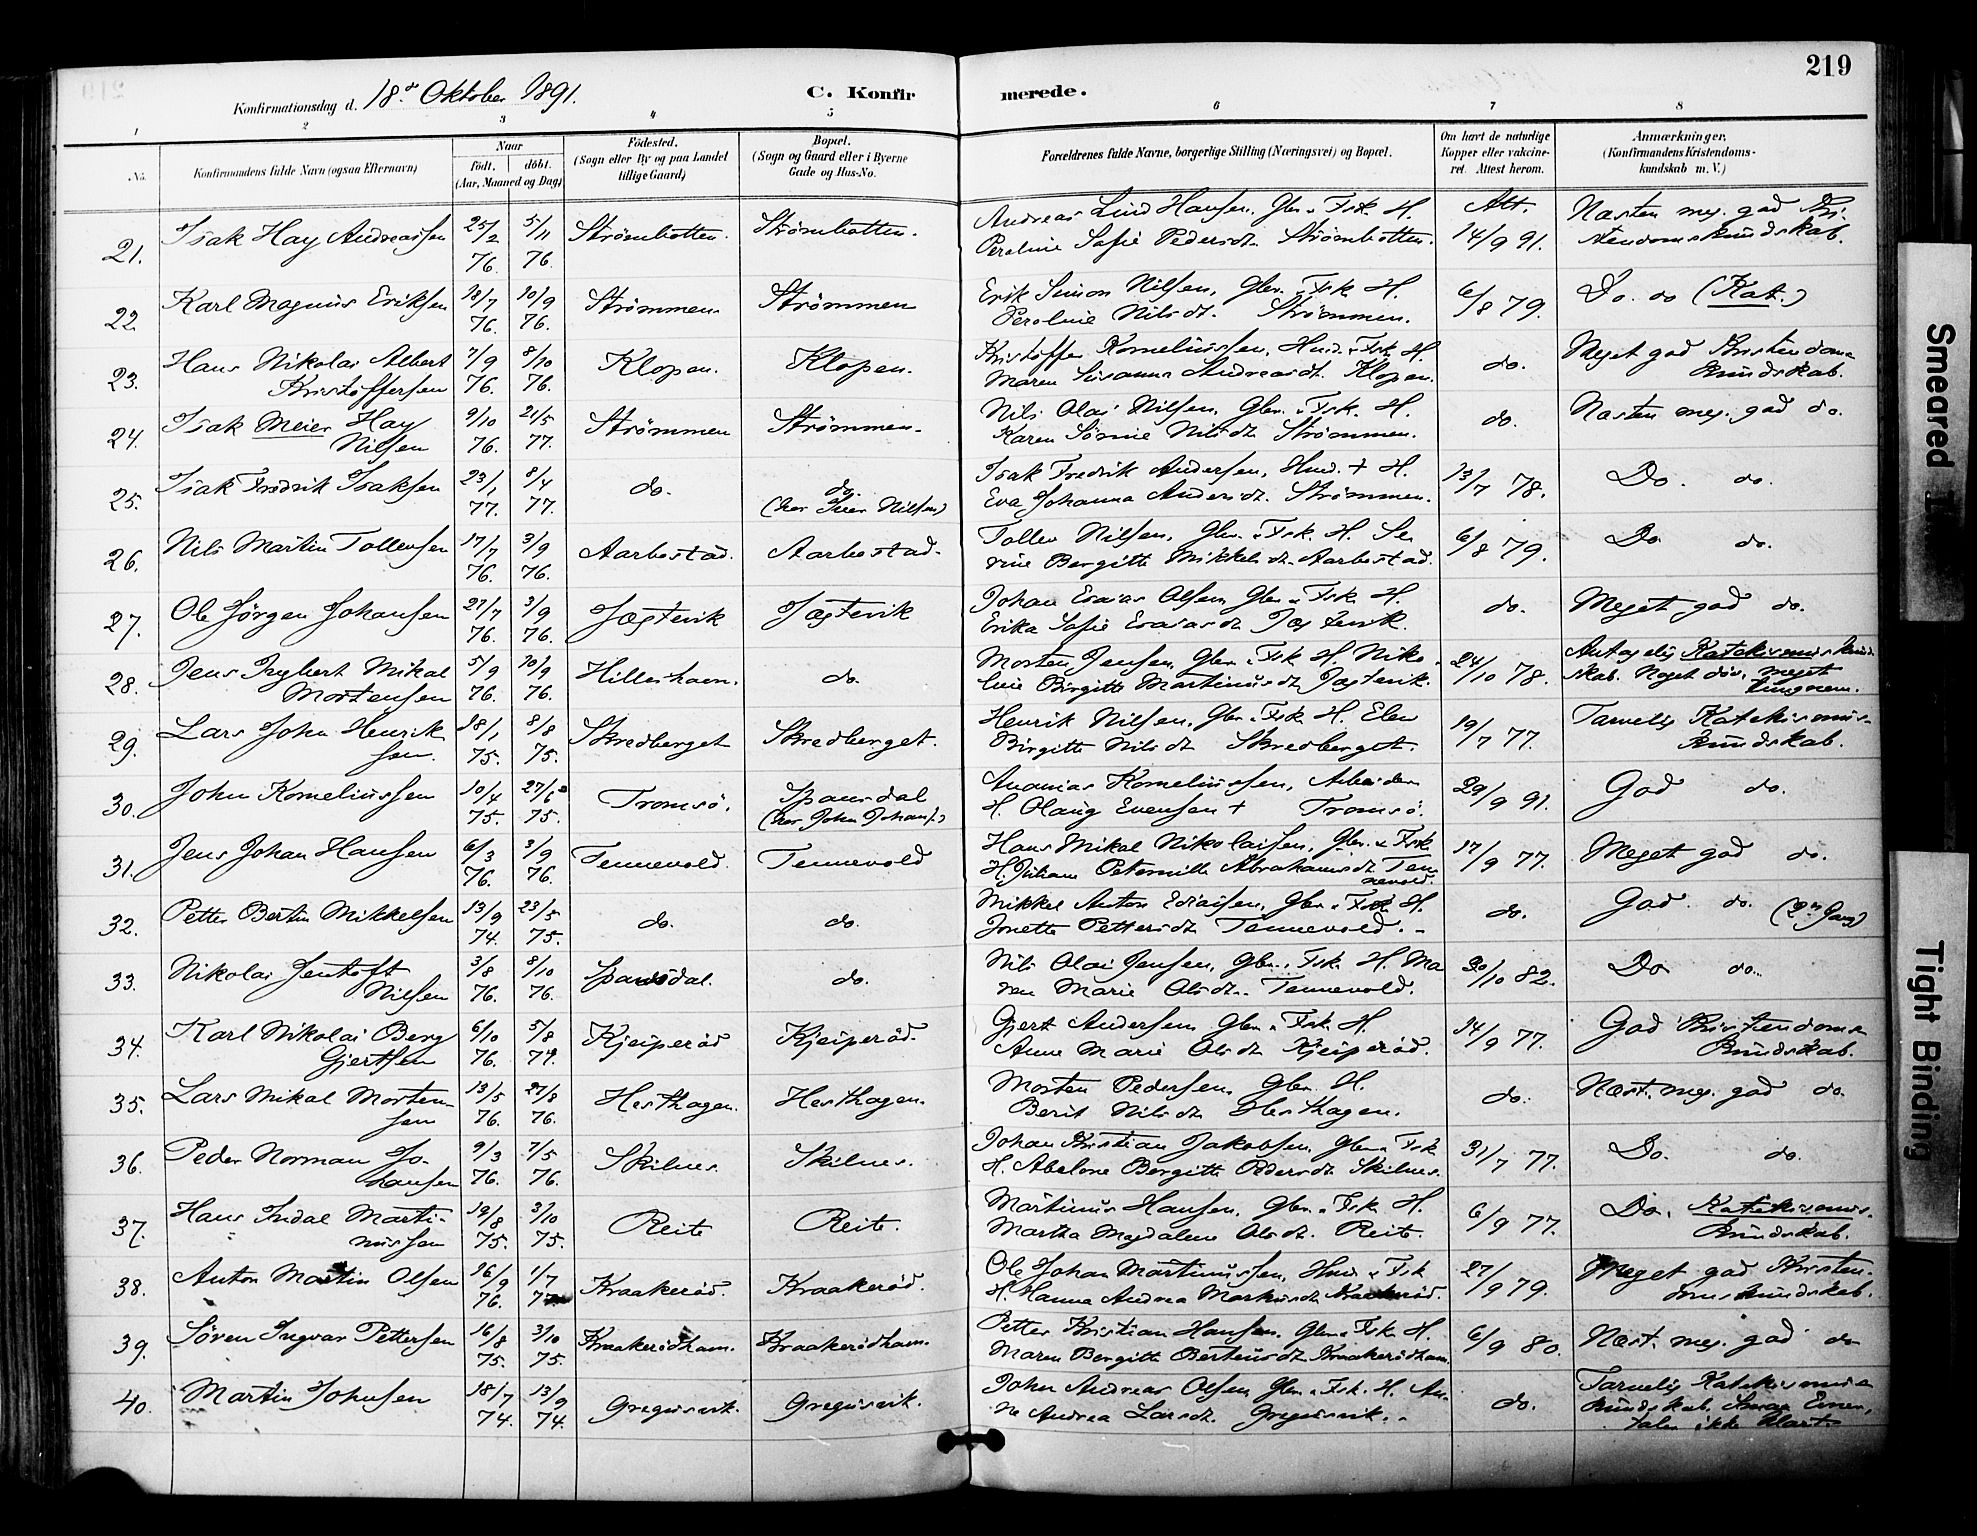 219
Konfirmationsdag d. 18de Oktober 1891.
C. Konfirmerede.
1 2 3 4 5 6 7 8
No.
Konfirmandens fulde Navn (ogsaa Efternavn)
Naar
født. døbt.
(Aar, Maaned og Dag)
Fødested.
(Sogn eller By og paa Landet
tillige Gaard)
Bopæl.
(Sogn og Gaard eller i Byerne
Gade og Hus-No.
Forældrenes fulde Navne, borgerlige Stilling (Næringsvei) og Bopæl.
Om havt de naturlige
Kopper eller vakcine-
ret. Attest herom.
Anmærkninger.
(Konfirmandens Kristendoms-
kundskab m. V.)
21. Isak Hay Andreassen 25/2 76. 5/11 76. Strömbotten. Strömbotten.
Andreas Lind Hansen, Gbr. & Fsk. H.
Peroline Sofie Pedersdt. Strömbotten.
Att. 14/9 91.
Næsten meg. god Kri-
stendomskundskab.
22. Karl Magnus Eriksen 18/7 76. 10/9 76. Strömmen. Strömmen
Erik Simon Nilsen, Gbr. & Fsk. H.
Peroline Nilsdt. Strömmen.
6/8 79.
Do. do (Kat.)
23. Hans Nikolai Albert
Kristoffersen 7/9 76. 8/10 76. Klopen. Klopen.
Kristoffer Korneliussen, Hmd. & Fsk. H.
Maren Susanna Andreasdt. Klopen.
do.
Meget god Kristendoms
kundskab.
24. Isak Meier Hay
Nilsen 9/10 76. 21/5 77. Strömmen Strömmen.
Nils Olai Nilsen, Gbr. & Fsk. H.
Karen Sörine Nilsdt. Strömmen.
do.
Næsten meg. god do.
25. Isak Fredrik Isaksen 23/1 77. 8/4 77. do. do.
(hos Iver Nilsen)
Isak Fredrik Andersen, Hmd. + H.
Eva Johanna Andersdt. Strömmen.
13/7 78.
Do. do.
26. Nils Martin Tollevsen 17/7 76. 3/9 76. Aarbostad. Aarbostad.
Tollev Nilsen, Gbr. & Fsk. H. Se-
rine Bergitte Mikkelsdt. Aarbostad.
6/8 79.
Do do.
27. Ole Jörgen Johansen 27/7 76. 3/9 76. Jægtevik Jægtevik
Johan Esaias Olsen, Gbr. & Fsk. H.
Erika Sofie Esaiasdt. Jægtevik.
do.
Meget god do.
28. Jens Ingbert Mikal
Mortensen 5/9 76. 10/9 76. Hilleshavn. do.
Morten Jensen, Gbr. & Fsk. H. Niko-
line Birgitte Martinusdt. Jægtevik.
24/10 78.
Antagelig Katekismuskund-
skab. Noget döv, meget
tungnem.
29. Lars John Henrik-
sen. 18/1 75. 8/8 75. Skredberget Skredberget.
Henrik Nilsen, Gbr. & Fsk. H. Elen
Birgitte Nilsdt. Skredberget.
19/7 77.
Tarvelig Katekismus-
kundskab.
30. John Korneliussen 10/4 75. 27/6 75. Tromsö. Spansdal
(hos John Johans.)
Ananias Korneliussen, Arbeider
H. Olaug Evensen + Tromsö.
29/9 91.
God do.
31. Jens Johan Hansen 6/3 76. 3/9 76. Tennevold. Tennevold
Hans Mikal Nikolaisen, Gbr. & Fsk.
H. Juliane Peternille Abrahamsdt. Ten-
nevold.
17/9 77.
Meget god do.
32. Petter Bertin Mikkelsen 13/9 74. 23/5 75. do. do.
Mikkel Anton Esaisen, Gbr. & Fsk. H.
Jonette Pettersdt. Tennevold.
do.
God do. (2den Gang)
33. Nikolai Jentoft
Nilsen 3/8 76. 8/10 76. Spansdal. do.
Nils Olai Jensen, Gbr. & Fsk. H. Ma-
ren Marie Olsdt. Tennevold.
30/10 82.
Do do.
34. Karl Nikolai Berg
Gjertsen 6/10 76. 5/8 77. Kjeiperöd Kjeiperöd.
Gjert Andersen, Gbr. & Fsk. H.
Anne Marie Olsdt. Kjeiperöd.
14/9 77.
God Kristendoms-
kundskab.
35. Lars Mikal Morten-
sen 13/5 76. 27/8 76. Hesthagen. Hesthagen.
Morten Pedersen, Gbr. H.
Berit Nilsdt. Hesthagen.
do.
Næst. meg. god do.
36. Peder Norman Jo-
hansen 9/3 76. 7/5 76. Skilnes Skilnes.
Johan Kristian Jakobsen, Gbr. & Fsk.
H. Abelone Bergitte Pedersdt. Skilnes.
31/7 77.
Do. do.
37. Hans Indal Marti-
nussen 19/8 75. 3/10 75. Reite Reite.
Martinus Hansen, Gbr. & Fsk. H.
Martha Magdalene Olsdt. Reite.
6/9 77.
Do. Katekismus-
kundskab.
38. Anton Martin Olsen 16/9 76. 1/7 77. Kraakeröd. Kraakeröd.
Ole Johan Martinussen, Hmd. & Fsk
H. Hanna Andrea Markusdt. Kraakeröd.
27/9 79.
Meget god Kristen-
domskundskab.
39. Sören Ingvar Pettersen 16/8 75. 3/10 75. Kraakerödhavn. Kraakerödhavn.
Petter Kristian Hansen, Gbr. & Fsk. H.
Maren Bergitte Berteusdt. Kraakerödhavn.
6/9 80.
Næst. meg. god do
40. Martin Johnsen 18/7 74. 13/9 74. Gregusvik. Gregusvik.
John Andreas Olsen, Gbr. & Fsk. H. An-
ne Andrea Larsdt. Gregusvik.
do.
Tarvelig Katekismus-
kundskab. Smaa Evner,
taler ikke klart.
Smeared
Tight Binding